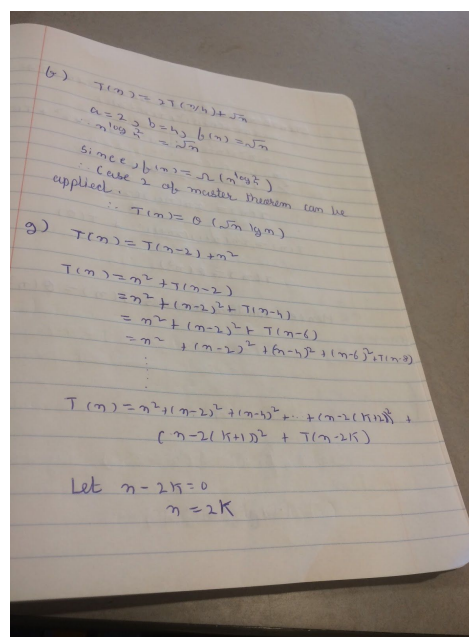 f.) T(n) = 2T(n/4) + √n
a = 2, b = 4, f(n) = √n
n^log₄2 = √n
Since, f(n) = Ω(n^log₄2)
∴ Case 2 of master theorem can be
applied.
∴ T(n) = θ(√n lgn)
g) T(n) = T(n-2) + n²
T(n) = n² + T(n-2)
= n² + (n-2)² + T(n-4)
= n² + (n-2)² + T(n-6)
= n² + (n-2)² + (n-4)² + (n-6)² + T(n-8)
⋮
T(n) = n² + (n-2)² + (n-4)² + .. + (n-2(K+2))² +
(n-2(K+1))² + T(n-2K)
Let n - 2K = 0
n = 2K